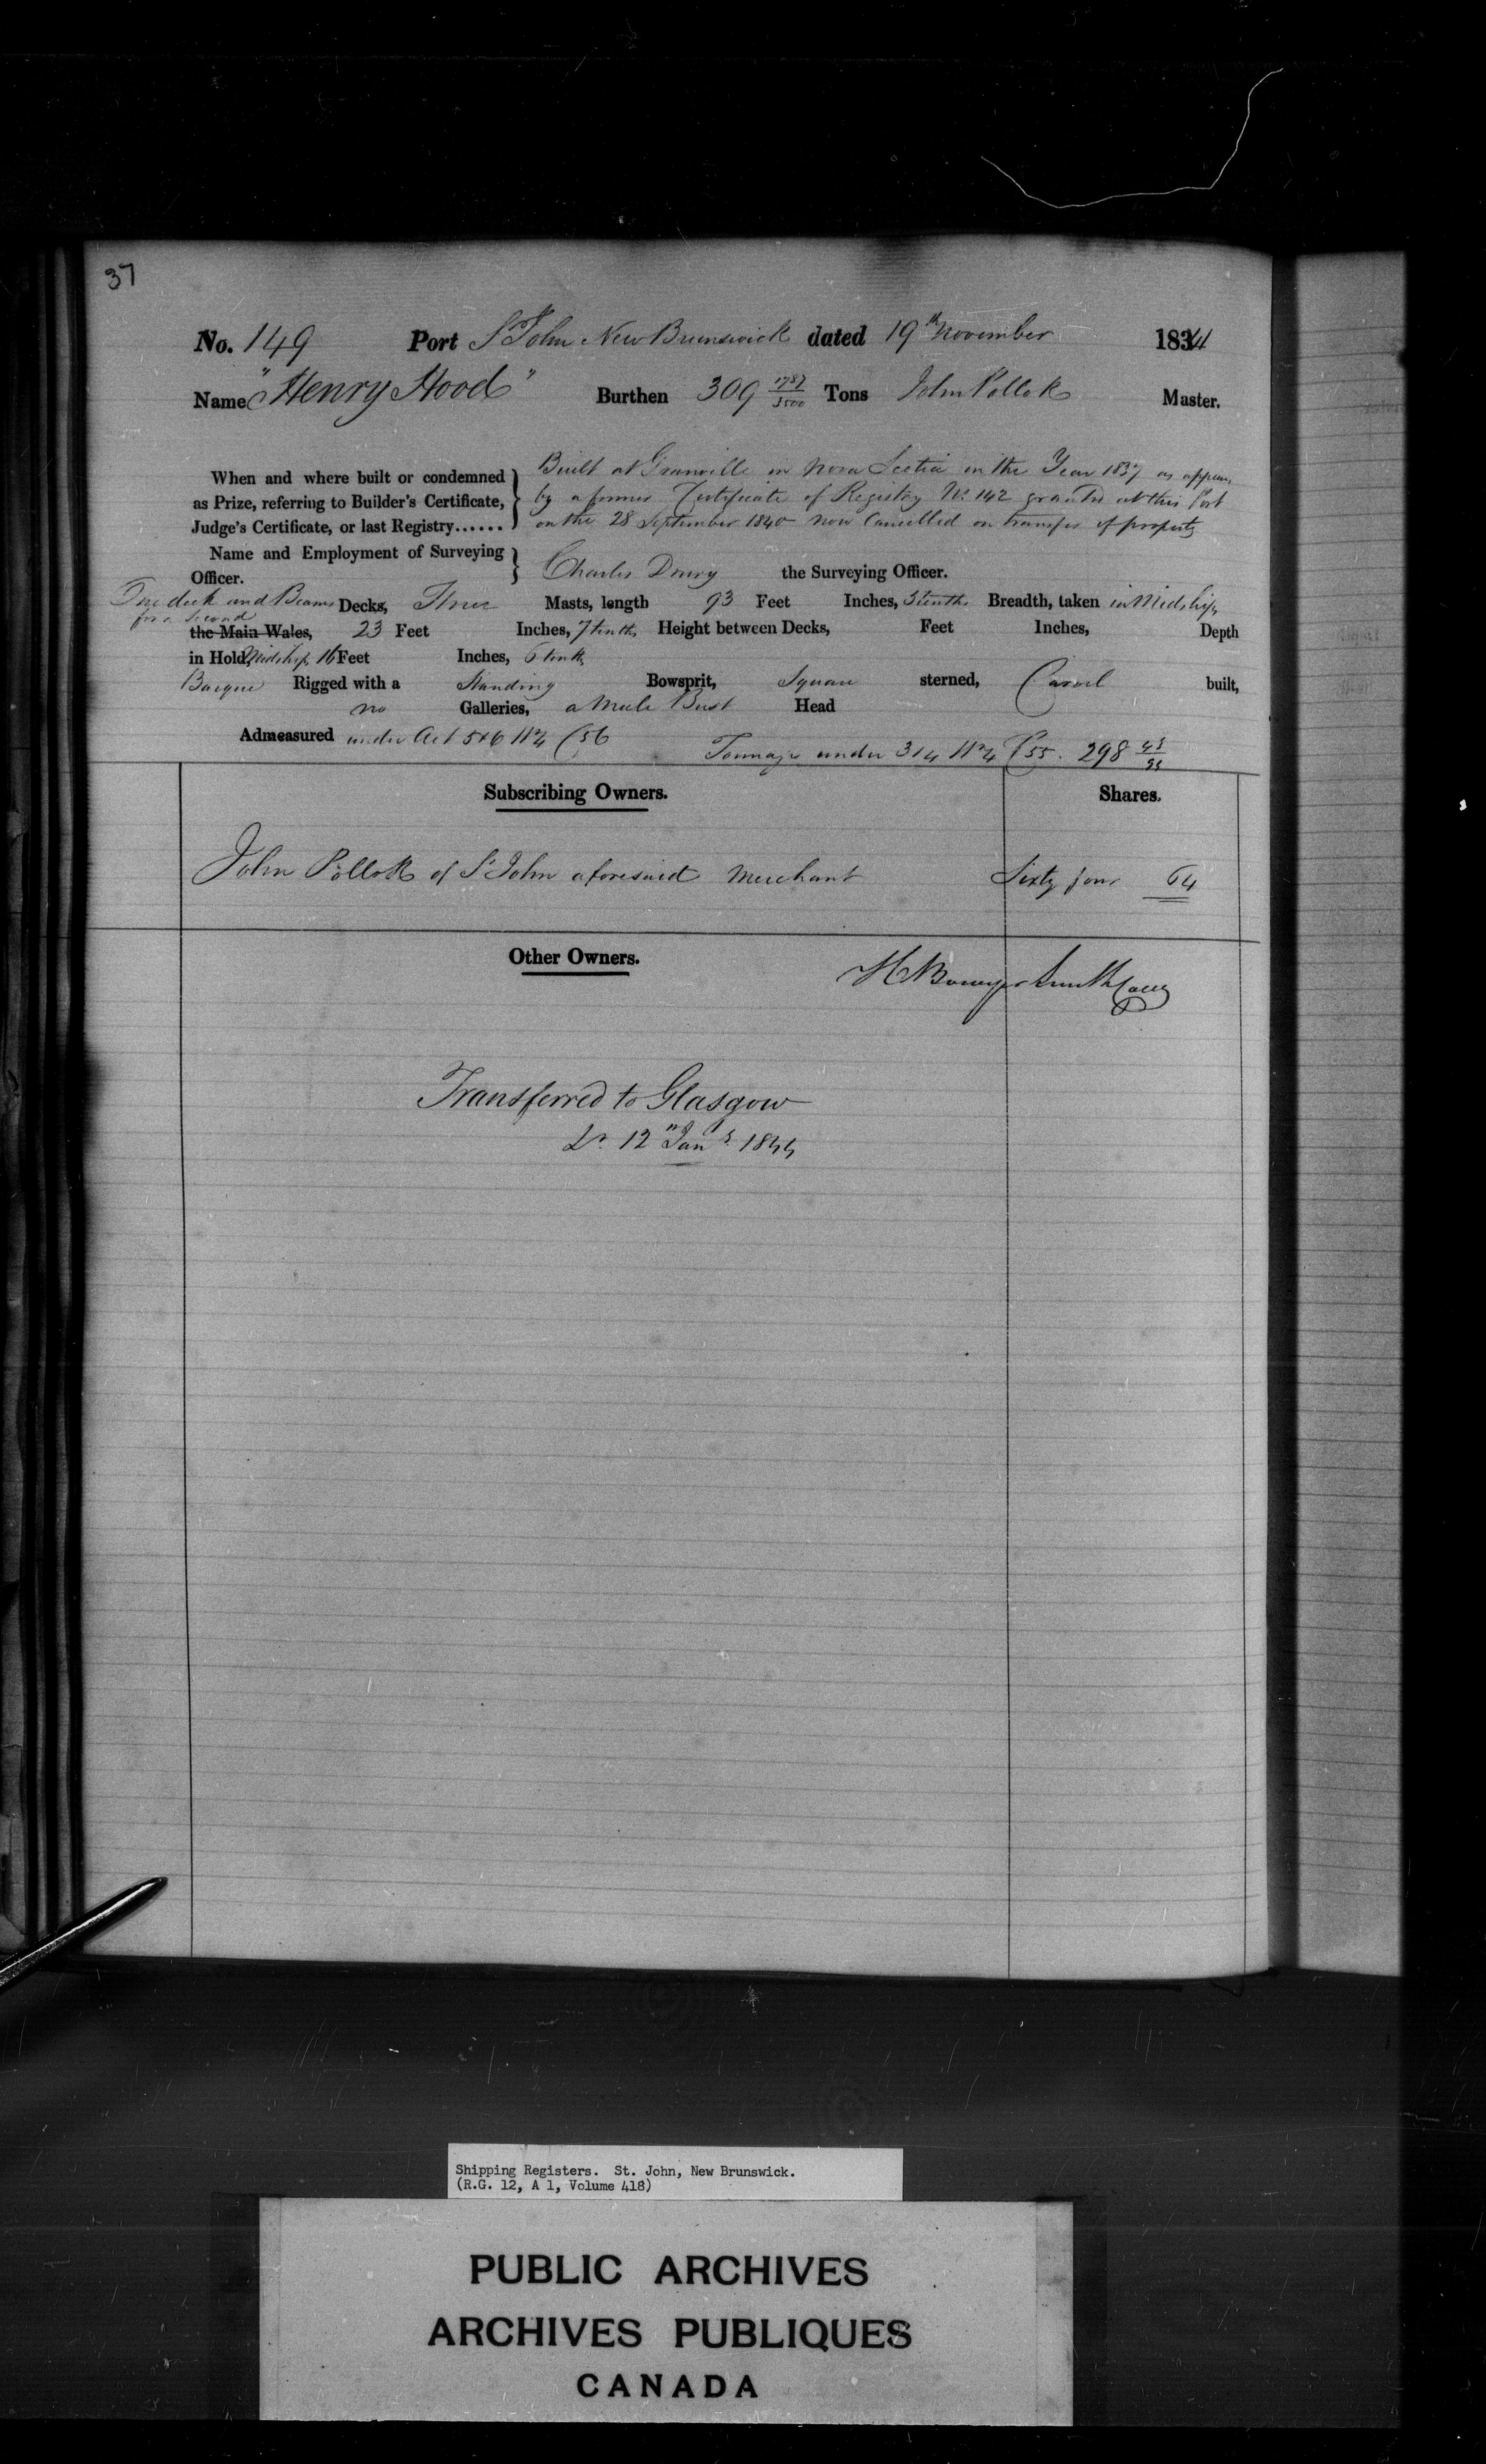 37
No. 149 Port St John New Brunswick dated 19th November 1841
Name "Henry Hood" Burthen 309 1787/3500 Tons John Pollok Master.
When and where built or condemned as Prize, referring to Builder's Certificate, Judge's Certificate, or last Registry......
Built at Granville in Nova Scotia in the Year 1837 as appears
by a former Certificate of Registry No 142 granted at this Port
on the 28 September 1840 now Cancelled on transfer of property
Name and Employment of Surveying Officer.
Charles Drury the Surveying Officer.
One deck and Beams for a Second Decks, Three Masts, length 93 Feet Inches, 3 tenths Breadth, taken in Midships
the Main Wales, 23 Feet Inches, 7 tenths Height between Decks, Feet Inches, Depth
in Hold, Midships 16 Feet Inches, 6 tenths
Barque Rigged with a Standing Bowsprit, Square sterned, Carvel built,
no Galleries, a Male Bust Head
Admeasured under Act 5 & 6 Wm 4 C 56
Tonnage under 3 & 4 Wm 4 C 55. 298
Subscribing Owners. Shares.
John Pollok of St John aforesaid Merchant Sixty four 64
Other Owners.
H Bowyer Smith
Transferred to Glasgow
12 Jany 1844
Shipping Registers. St. John, New Brunswick.
(R.G. 12, A 1, Volume 418)
PUBLIC ARCHIVES
ARCHIVES PUBLIQUES
CANADA